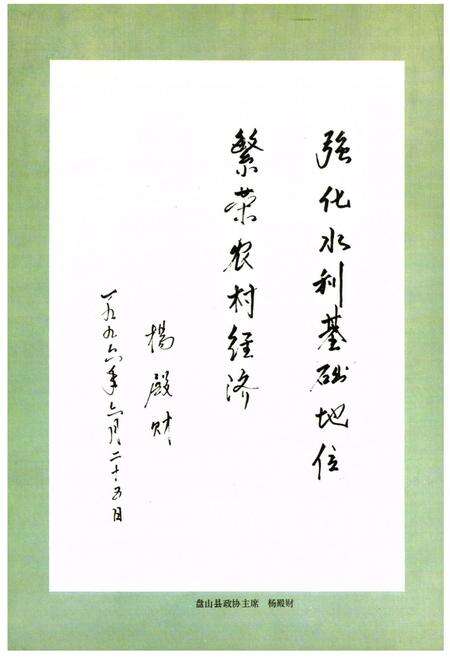 强化水利基础地位
繁荣农村经济
楊殿财
一九九六年六月二十五日
盘山县政协主席 杨殿财